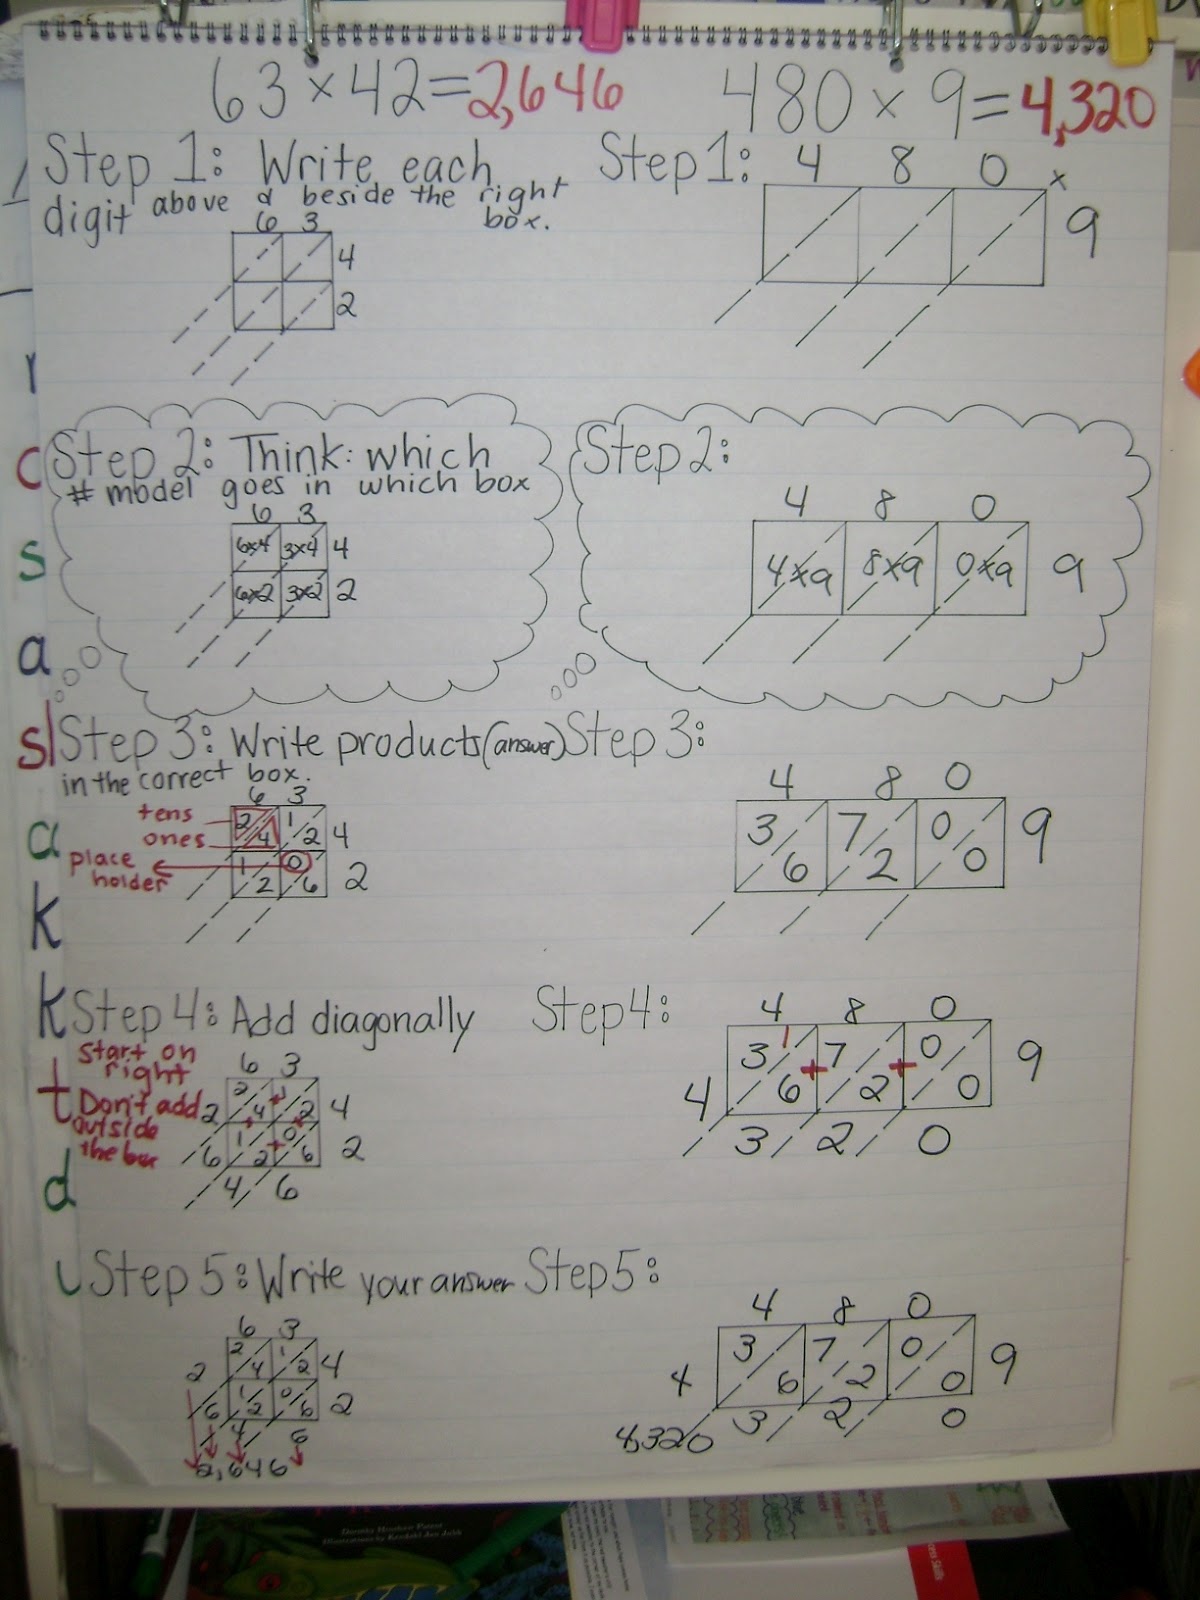 63 × 42 = 2,646
480 × 9 = 4,320
Step 1: Write each
digit above & beside the right
box.
6 3
4
2
Step 1: 4 8 0 ×
9
Step 2: Think: which
# model goes in which box
6 3
6×4 3×4 4
6×2 3×2 2
Step 2:
4 8 0
4×9 8×9 0×9 9
Step 3: Write products (answer)
in the correct box.
6 3
tens 2 1
ones 4 2 4
place 1 0
holder 2 6 2
Step 3:
4 8 0
3 7 0 9
6 2 0
Step 4: Add diagonally
Start on
right
Don't add
outside
the box
6 3
2 + 1
2 4 + 2 4
1 + 0
6 2 6 2
4 6
Step 4:
4 8 0
1
3 7 0 9
4 6 + 2 + 0
3 2 0
Step 5: Write your answer
6 3
2 1
2 4 2 4
1 0
6 2 6 2
4 6
2,646
Step 5:
4 8 0
3 7 0 9
4 6 2 0
3 2 0
4,320
c
s
a
sl
a
k
k
t
d
Dorothy Hinshaw Patent
Illustrations by Kendahl Jan Jubb